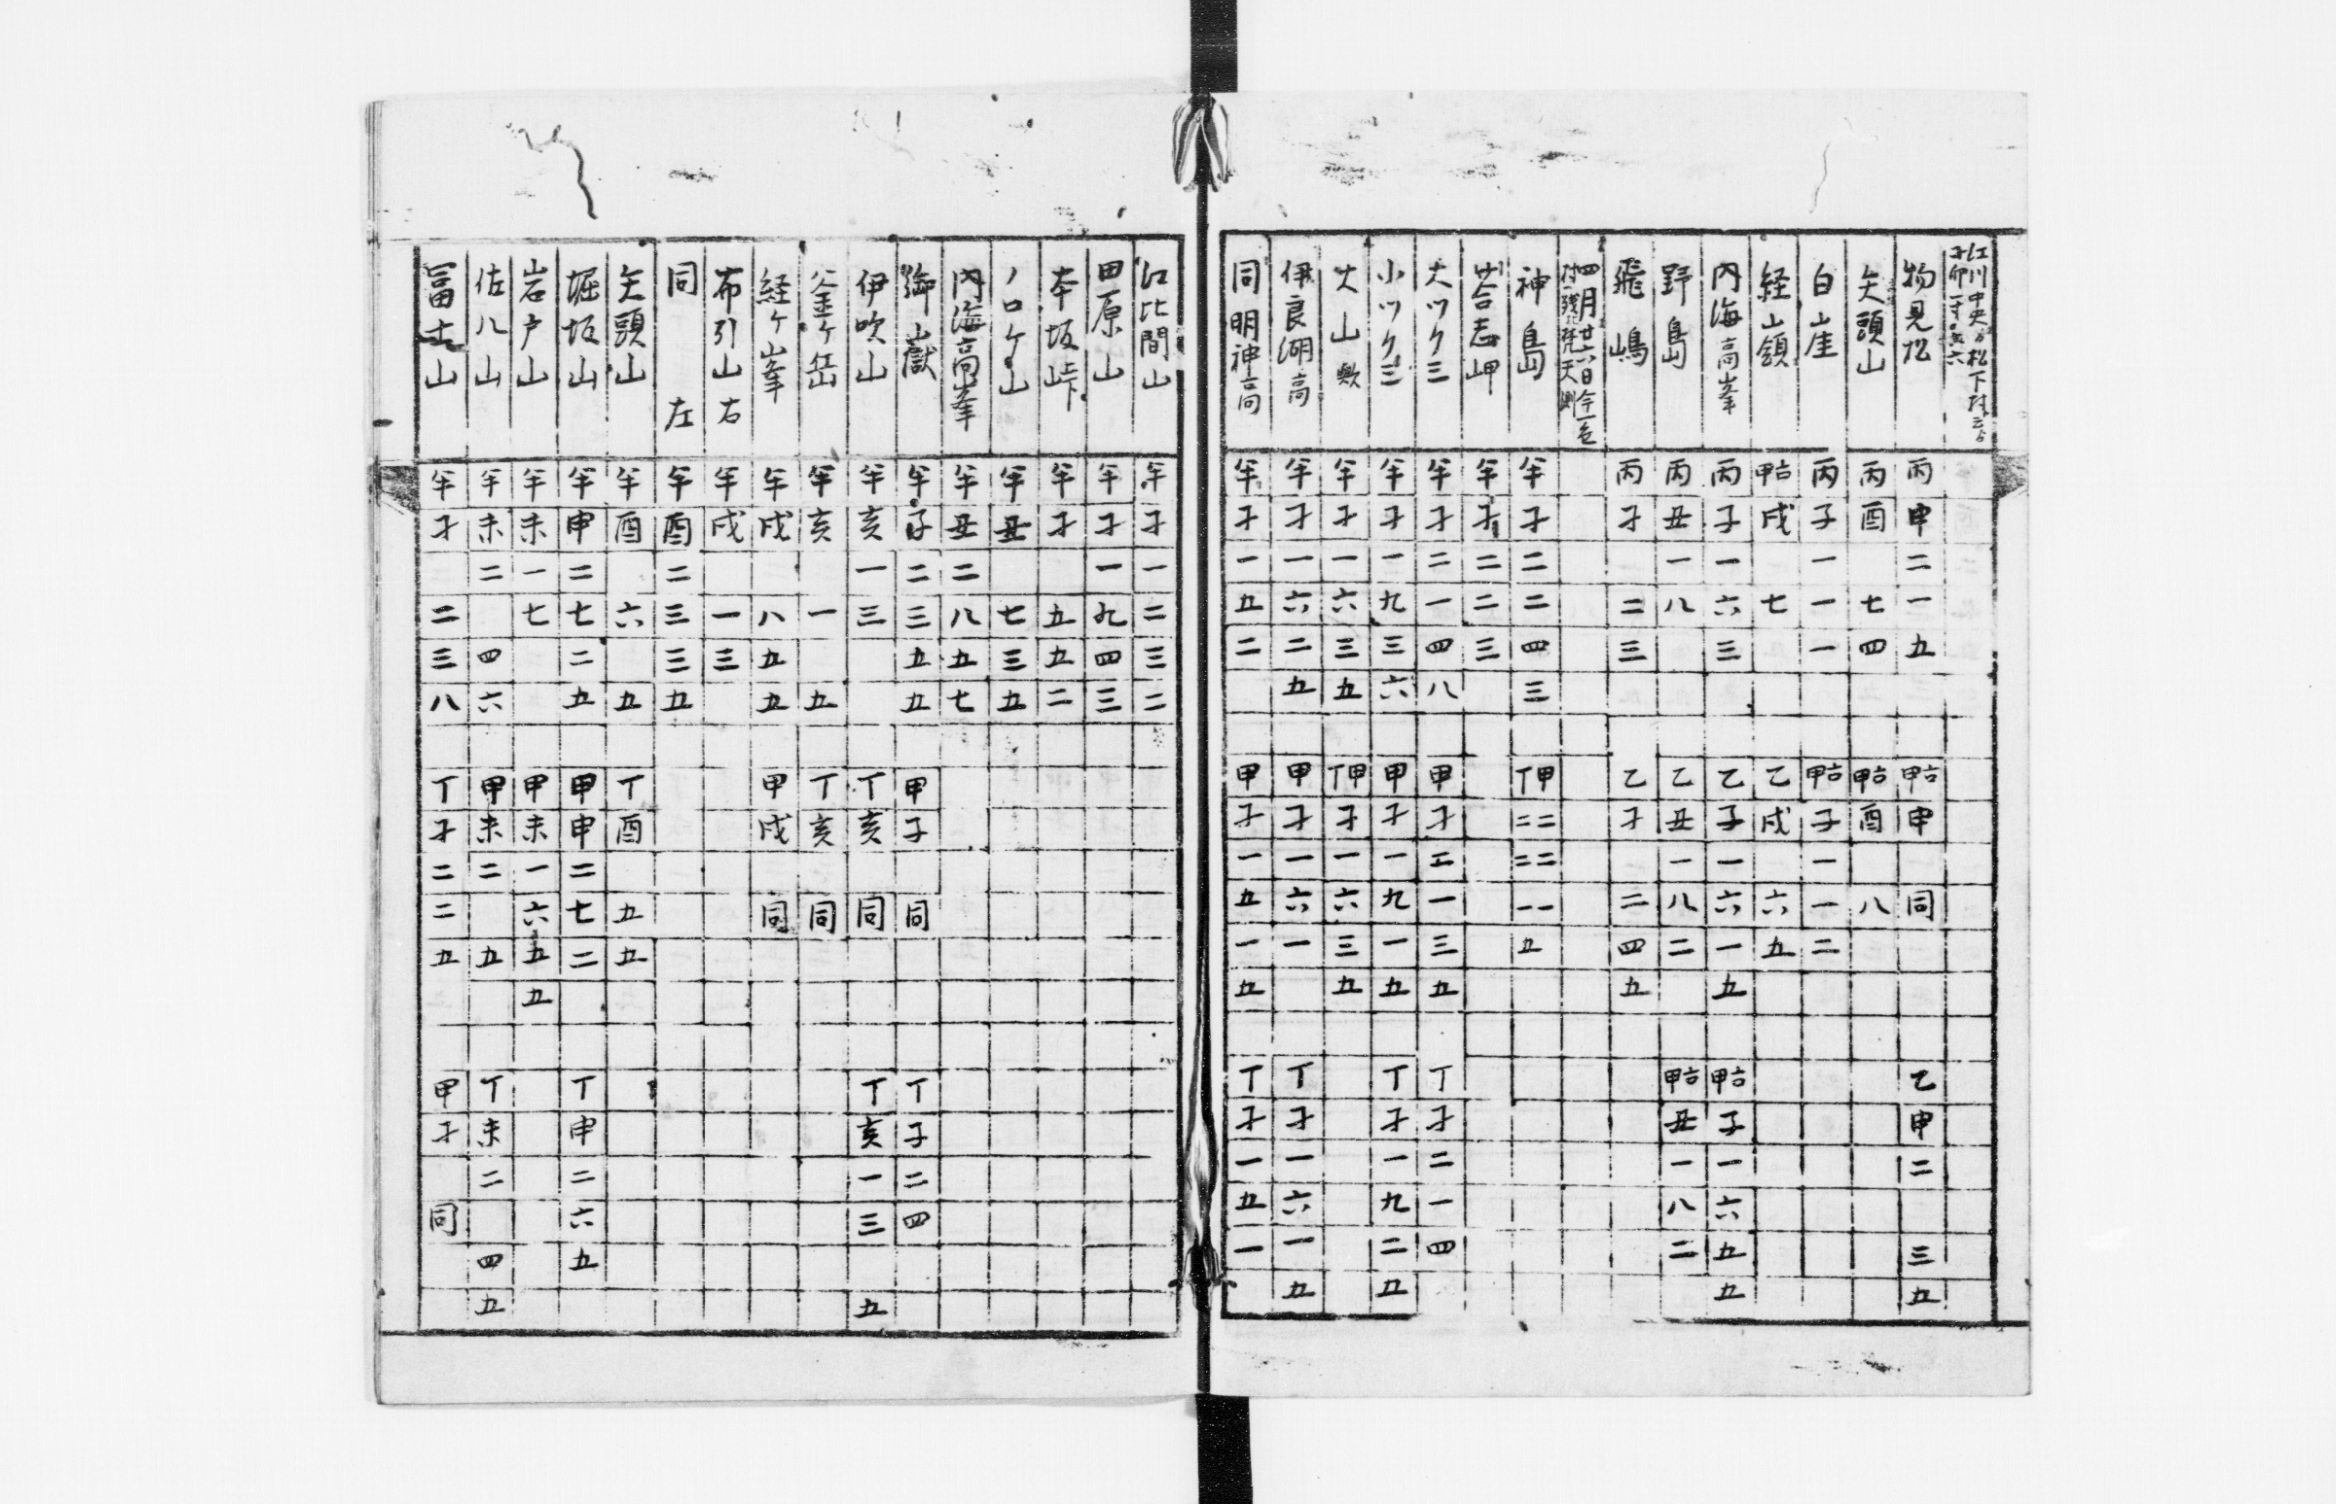 江川中央ゟ松下村三ツ
子卯一寸〇五六
物見松 丙申二一五 甲古申同 乙申二三五
矢頭山 丙酉七四 甲古酉八
白崖 丙子一一一 甲古子一一二
経山嶺 甲古戌七 乙戌六五
内海高峯 丙子一六三 乙子一六一五 甲古子一六五五
野島 丙丑一八 乙丑一八二 甲古丑一八二
飛嶋 丙子二三 乙子二四五
四月廿六日今一色
村残荒天測
神島 午子二二四三 丁甲二二二二一一五
荅志岬 午子二二三
大ツク三 午子二一四八 甲子二一三五 丁子二一四
小ツク三 午子一九三六 甲子一九一五 丁子一九二五
大山 午子一六三五 丁甲子一六三五
伊良湖高 午子一六二五 甲子一六一 丁子一六一五
同明神高 午子一五二 甲子一五一五 丁子一五一
江比間山 午子一二三二
田原山 午子一九四三
本坂峠 午子五五二
ノロケ山 午丑七三五
内海高峯 午丑二八五七
御嶽 午子二三五五 甲子同 丁子二四
伊吹山 午亥一三 丁亥同 丁亥一三五
釜ケ岳 午亥一五 丁亥同
経ケ峯 午戌八五五 甲戌同
布引山右 午戌一三
同左 午酉二三三五
矢頭山 午酉六五 丁酉五五
堀坂山 午申二七二五 甲申二七二 丁申二六五
岩戸山 午未一七 甲未一六五五
佐八山 午未二四六 甲未二五 丁未二四五
冨士山 午子二三八 丁子二二五 甲子同